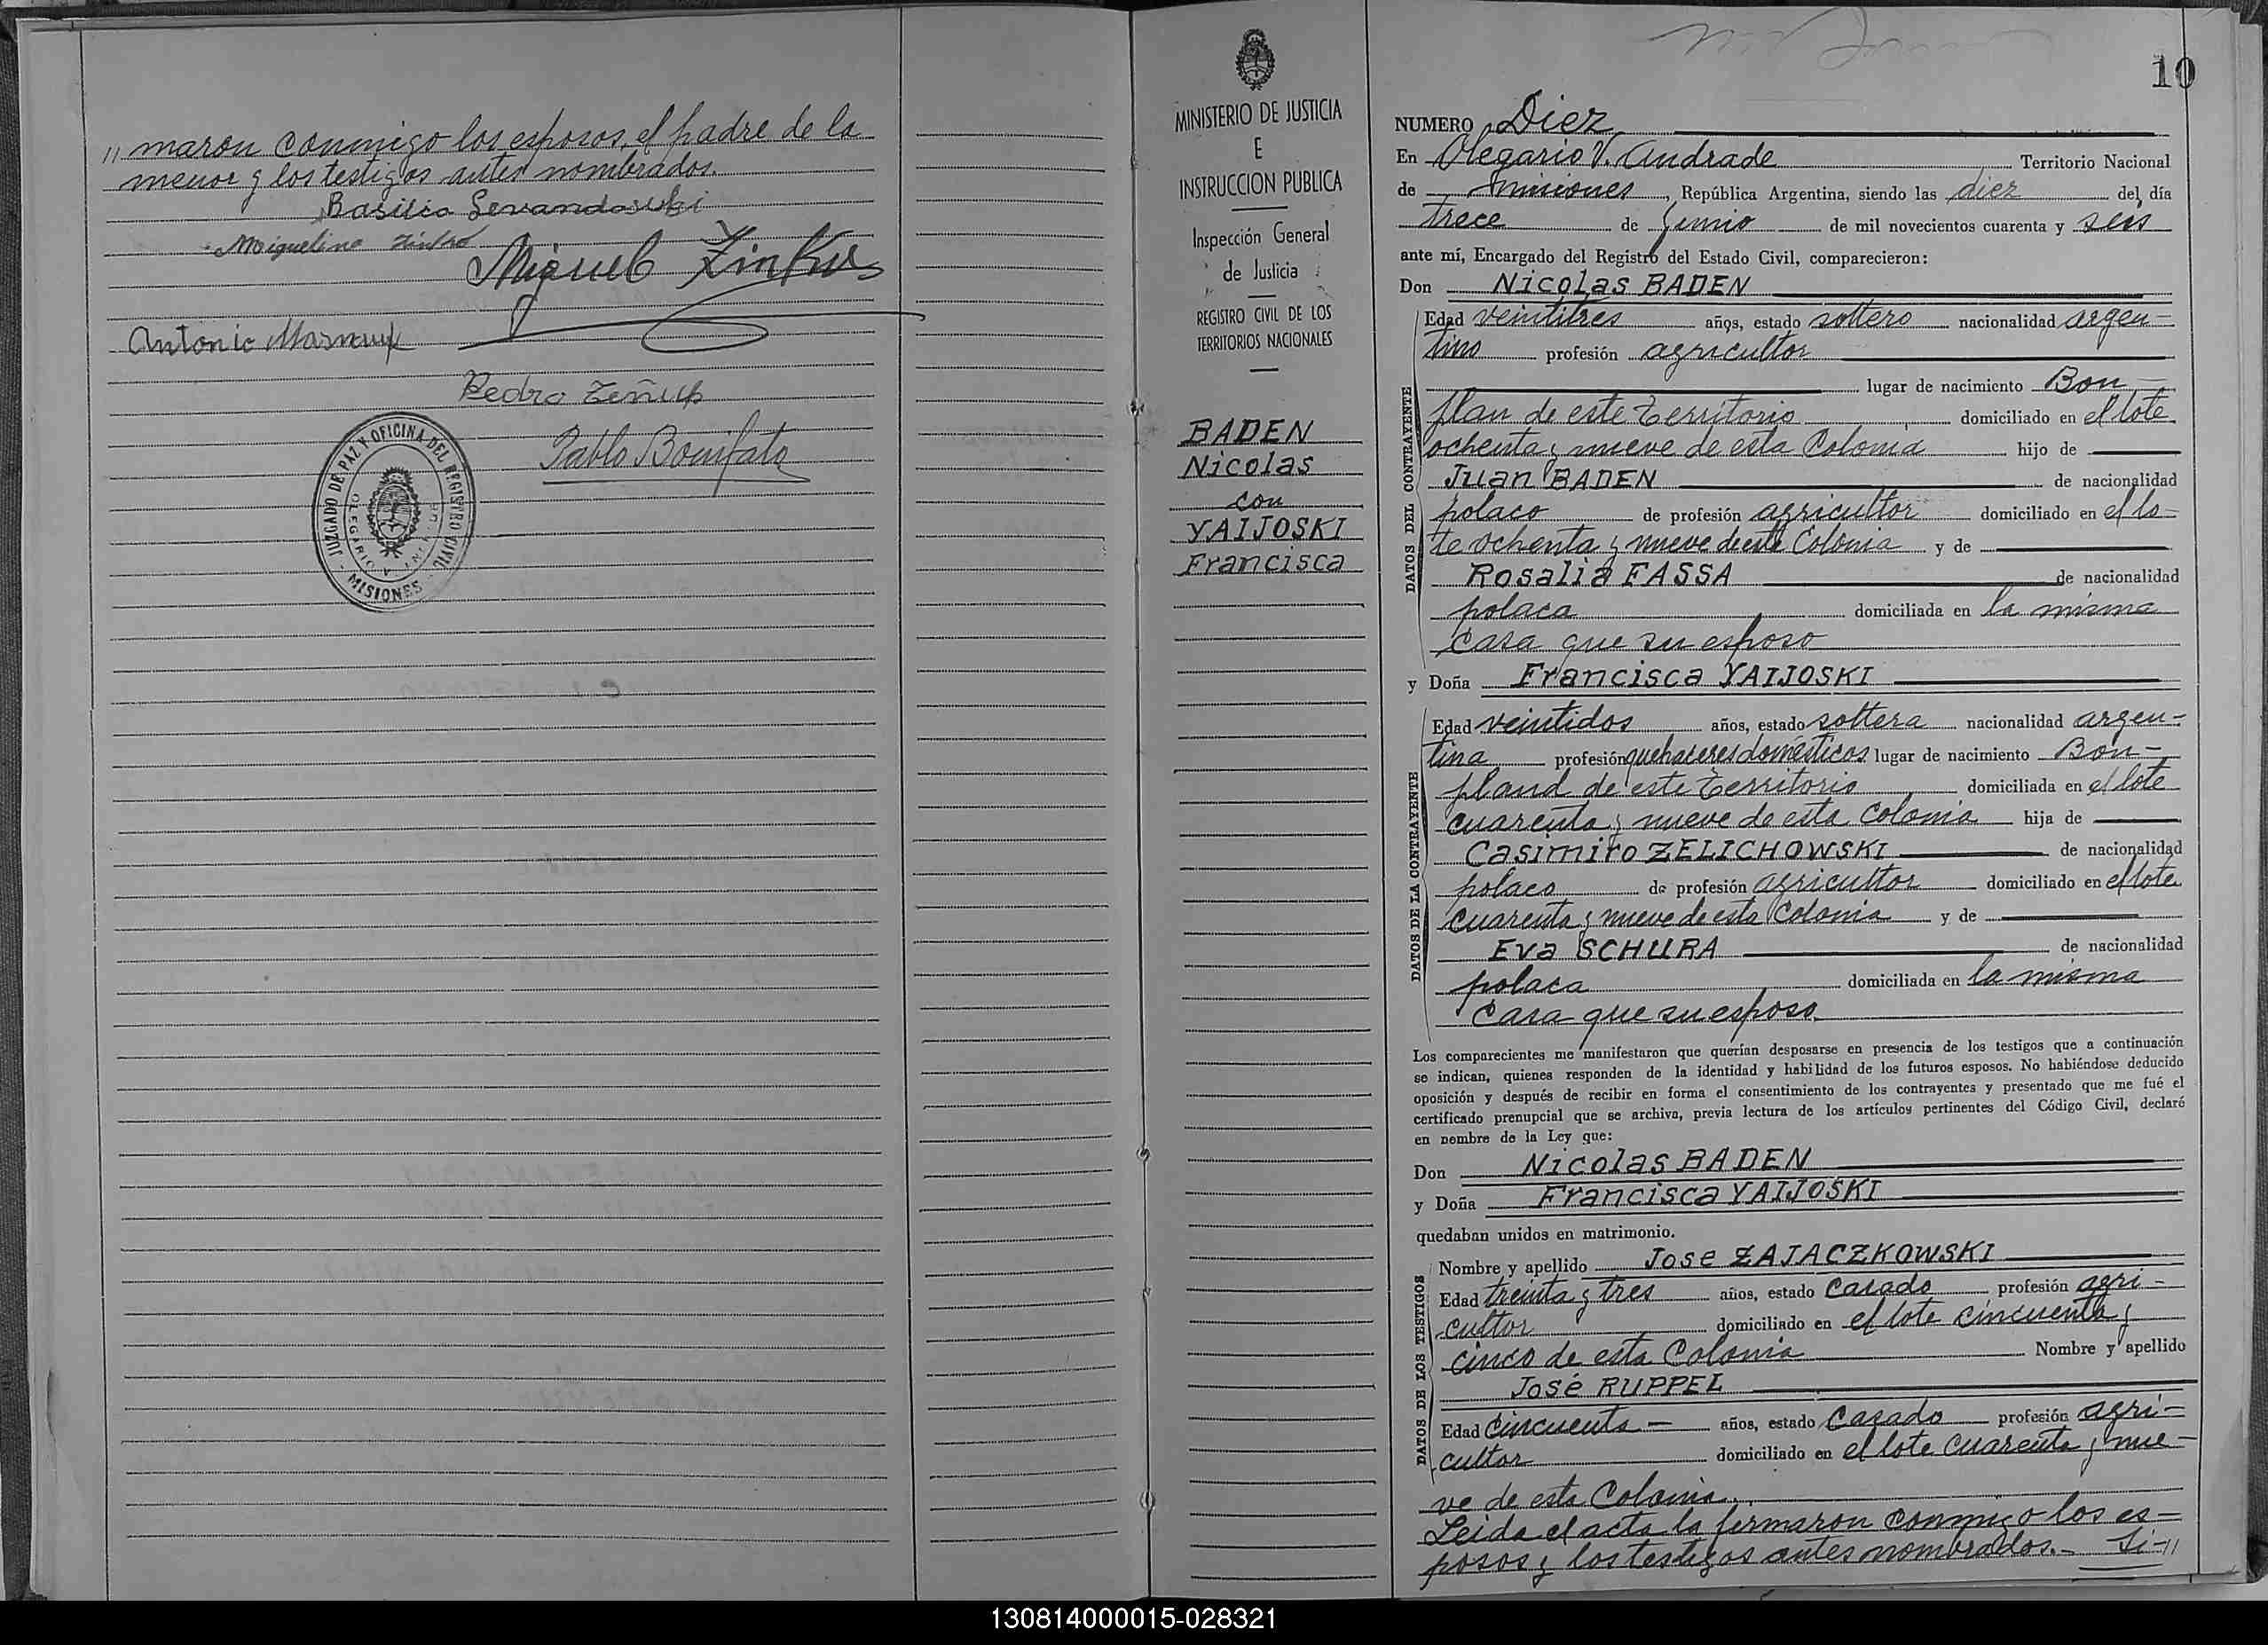 " maron conmigo los esposos, el padre de la
menor y los testigos antes nombrados.
Basilio Sevandowski
Miguelina Zinko
Miguel Zinkus
Antonio
Pedro
Pablo Bonifato
JUZGADO DE PAZ Y OFICINA DEL REGISTRO CIVIL
OLEGARIO V. ANDRADE
- MISIONES -
MINISTERIO DE JUSTICIA
E
INSTRUCCION PUBLICA
Inspección General
de Justicia
REGISTRO CIVIL DE LOS
TERRITORIOS NACIONALES
BADEN
Nicolas
con
YAIJOSKI
Francisca
10
NUMERO Diez
En Olegario V. Andrade Territorio Nacional
de Misiones, República Argentina, siendo las diez del día
trece de Junio de mil novecientos cuarenta y seis
ante mí, Encargado del Registro del Estado Civil, comparecieron:
Don Nicolas BADEN
DATOS DEL CONTRAYENTE
Edad veintitres años, estado soltero nacionalidad argen-
tino profesión agricultor
lugar de nacimiento Bon-
plan de este Territorio domiciliado en el lote
ochenta y nueve de esta Colonia hijo de
Juan BADEN de nacionalidad
polaco de profesión agricultor domiciliado en el lo-
te ochenta y nueve de esta Colonia y de
Rosalia FASSA de nacionalidad
polaca domiciliada en la misma
casa que su esposo
y Doña Francisca YAIJOSKI
DATOS DE LA CONTRAYENTE
Edad veintidos años, estado soltera nacionalidad argen-
tina profesión quehaceres domésticos lugar de nacimiento Bon-
pland de este Territorio domiciliada en el lote
cuarenta y nueve de esta Colonia hija de
Casimiro ZELICHOWSKI de nacionalidad
polaco de profesión agricultor domiciliado en el lote
cuarenta y nueve de esta Colonia y de
Eva SCHURA de nacionalidad
polaca domiciliada en la misma
casa que su esposo.
Los comparecientes me manifestaron que querían desposarse en presencia de los testigos que a continuación
se indican, quienes responden de la identidad y habilidad de los futuros esposos. No habiéndose deducido
oposición y después de recibir en forma el consentimiento de los contrayentes y presentado que me fué el
certificado prenupcial que se archiva, previa lectura de los artículos pertinentes del Código Civil, declaré
en nombre de la Ley que:
Don Nicolas BADEN
y Doña Francisca YAIJOSKI
quedaban unidos en matrimonio.
DATOS DE LOS TESTIGOS
Nombre y apellido Jose ZAJACZKOWSKI
Edad treinta y tres años, estado casado profesión agri-
cultor domiciliado en el lote cincuenta y
cinco de esta Colonia Nombre y apellido
José RUPPEL
Edad cincuenta - años, estado casado profesión agri-
cultor domiciliado en el lote cuarenta y nue-
ve de esta Colonia.
Leida el acta la firmaron conmigo los es-
posos y los testigos antes nombrados.- Si-"
130814000015-028321